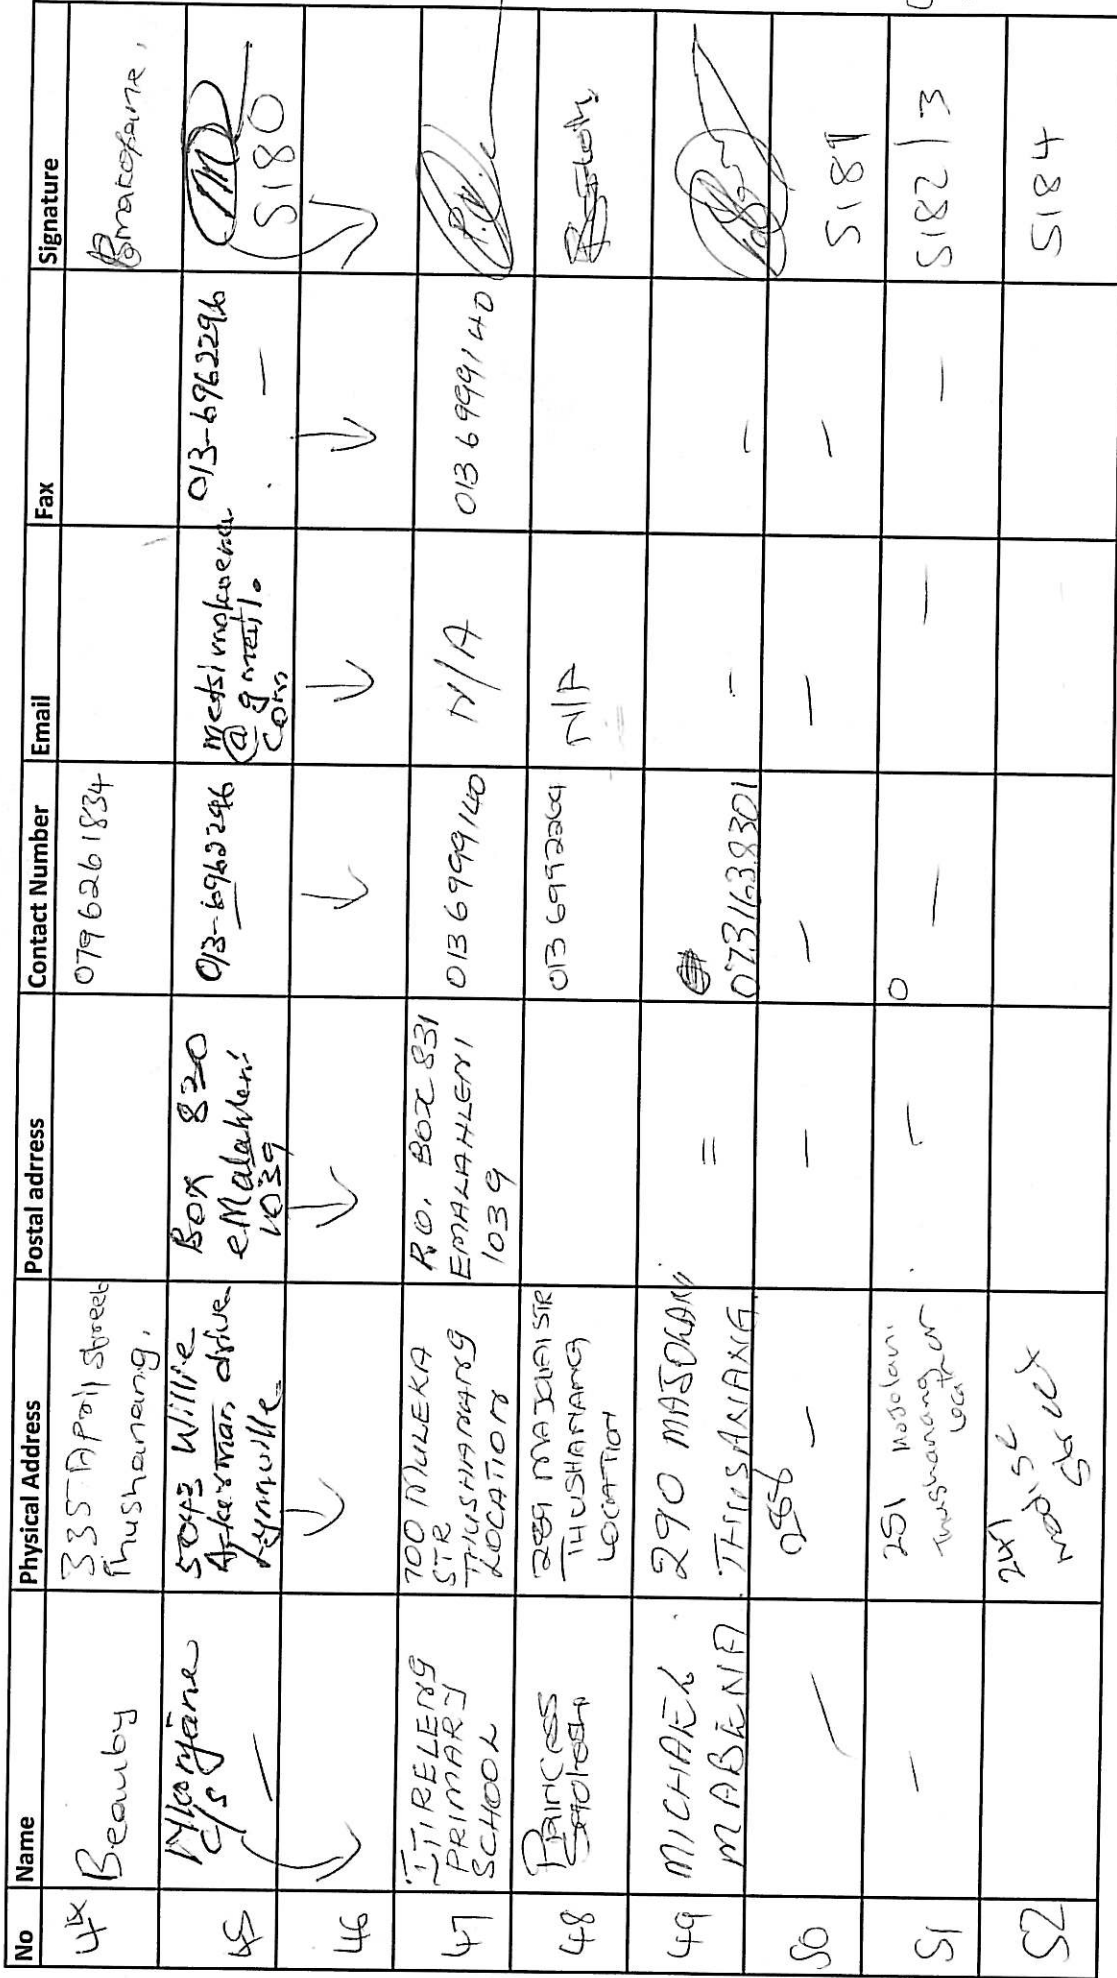 No Name Physical Address Postal adrress Contact Number Email Fax Signature
Beauby
335 April Street
Thushanang.
0796261834
Bmakofane.
45
C/S
5043 Willie
Akerman drive
Lynnville
Box 820
eMalahleni
1039
013-6962296
@gmail.
com
013-6962296
—
S180
46
47
ITIRELENG
PRIMARY
SCHOOL
700 MULEKA
STR
THUSHANANG
LOCATION
P.O. BOX 831
EMALAHLENI
1039
013 6999140
N/A
013 6999140
48
PRINCESS
289
THUSHANANG
LOCATION
013 6992269
N/A
49
MICHAEL
MABENA
290
THUSANANG
=
07311638301
-
-
50
—
—
—
—
—
—
S181
51
—
251
Thushanang
—
0 —
—
—
S182/3
52
241
Modise
Street
S184